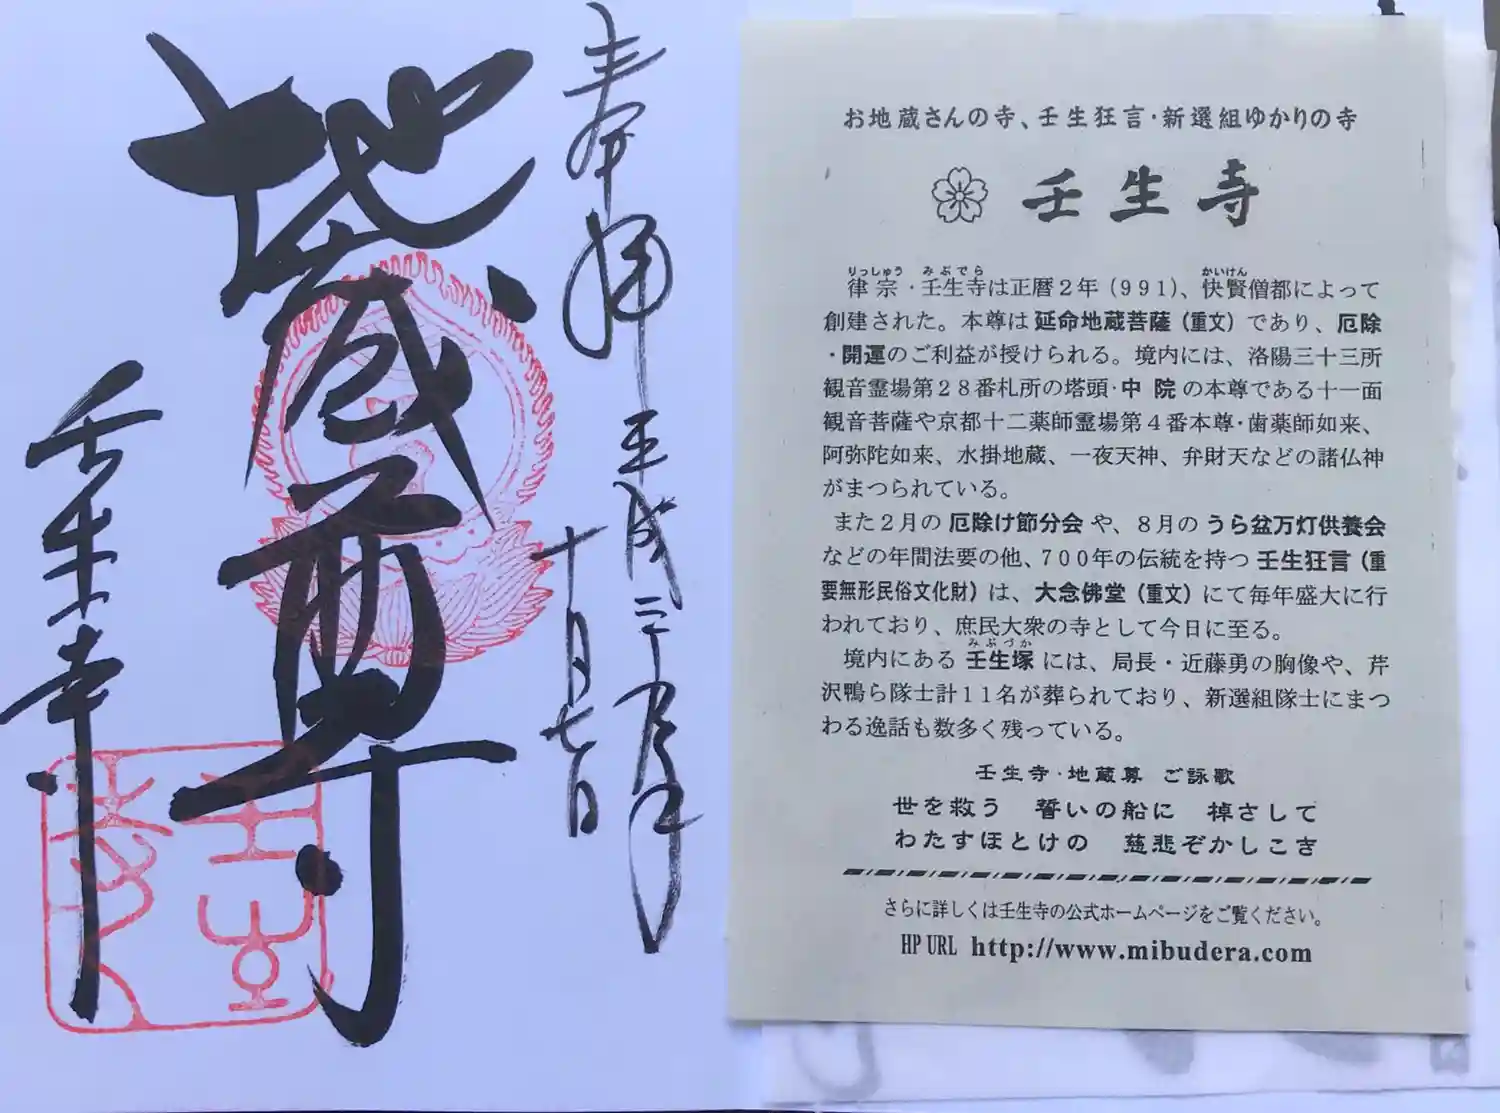 奉拝
平成二十九年
十月七日
地蔵尊
壬生寺
お地蔵さんの寺、壬生狂言・新選組ゆかりの寺
壬生寺
りっしゅう みぶでら かいけん
律宗・壬生寺は正暦2年(991)、快賢僧都によって
創建された。本尊は延命地蔵菩薩(重文)であり、厄除
・開運のご利益が授けられる。境内には、洛陽三十三所
観音霊場第28番札所の塔頭・中院の本尊である十一面
観音菩薩や京都十二薬師霊場第4番本尊・歯薬師如来、
阿弥陀如来、水掛地蔵、一夜天神、弁財天などの諸仏神
がまつられている。
また2月の厄除け節分会や、8月のうら盆万灯供養会
などの年間法要の他、700年の伝統を持つ壬生狂言(重
要無形民俗文化財)は、大念佛堂(重文)にて毎年盛大に行
われており、庶民大衆の寺として今日に至る。
みぶづか
境内にある壬生塚には、局長・近藤勇の胸像や、芹
沢鴨ら隊士計11名が葬られており、新選組隊士にまつ
わる逸話も数多く残っている。
壬生寺・地蔵尊 ご詠歌
世を救う 誓いの船に 棹さして
わたすほとけの 慈悲ぞかしこき
さらに詳しくは壬生寺の公式ホームページをご覧ください。
HP URL http://www.mibudera.com